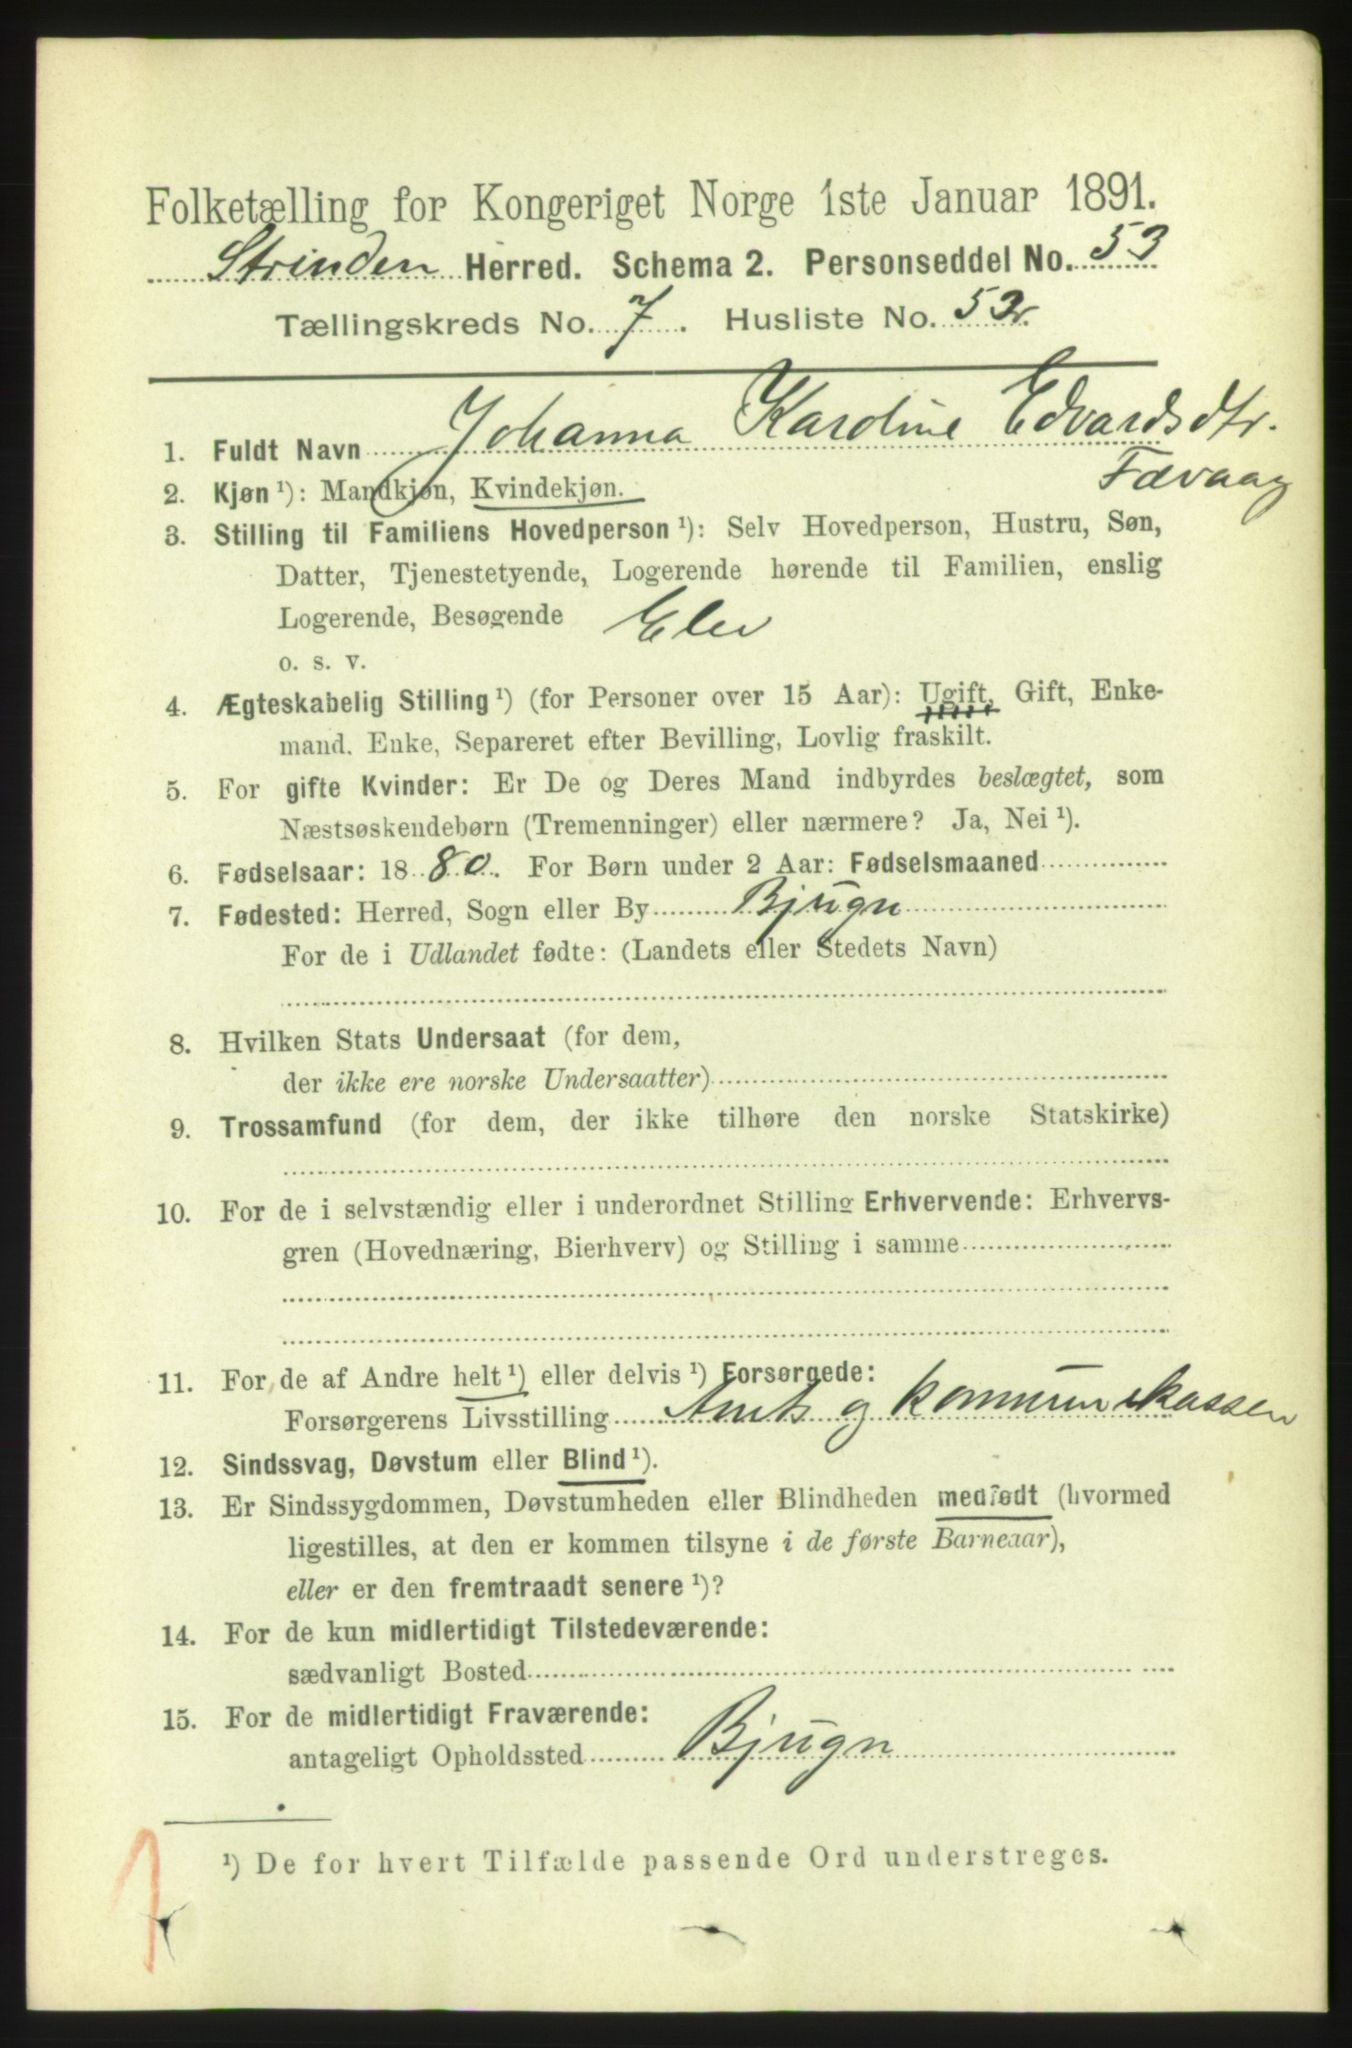 Folketælling for Kongeriget Norge 1ste Januar 1891.
Strinden Herred. Schema 2. Personseddel No. 53
Tællingskreds No. 7. Husliste No. 52.
1. Fuldt Navn Johanna Karoline Edvardsdtr.
Fævaag
2. Kjøn ¹): Mandkjøn, Kvindekjøn.
3. Stilling til Familiens Hovedperson ¹): Selv Hovedperson, Hustru, Søn,
Datter, Tjenestetyende, Logerende hørende til Familien, enslig
Logerende, Besøgende Elev
o. s. v.
4. Ægteskabelig Stilling ¹) (for Personer over 15 Aar): Ugift, Gift, Enke-
mand, Enke, Separeret efter Bevilling, Lovlig fraskilt.
5. For gifte Kvinder: Er De og Deres Mand indbyrdes beslægtet, som
Næstsøskendebørn (Tremenninger) eller nærmere? Ja, Nei ¹).
6. Fødselsaar: 1880. For Børn under 2 Aar: Fødselsmaaned
7. Fødested: Herred, Sogn eller By Bjugn
For de i Udlandet fødte: (Landets eller Stedets Navn)
8. Hvilken Stats Undersaat (for dem,
der ikke ere norske Undersaatter)
9. Trossamfund (for dem, der ikke tilhøre den norske Statskirke)
10. For de i selvstændig eller i underordnet Stilling Erhvervende: Erhvervs-
gren (Hovednæring, Bierhverv) og Stilling i samme
11. For de af Andre helt ¹) eller delvis ¹) Forsørgede:
Forsørgerens Livsstilling Amts og kommunekassen
12. Sindssvag, Døvstum eller Blind ¹).
13. Er Sindssygdommen, Døvstumheden eller Blindheden medfødt (hvormed
ligestilles, at den er kommen tilsyne i de første Barneaar),
eller er den fremtraadt senere ¹)?
14. For de kun midlertidigt Tilstedeværende:
sædvanligt Bosted
15. For de midlertidigt Fraværende:
antageligt Opholdssted Bjugn
¹) De for hvert Tilfælde passende Ord understreges.
7